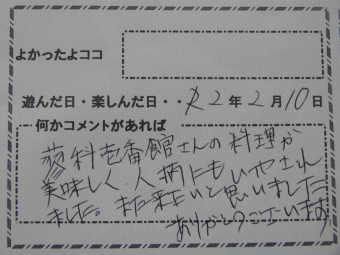 よかったよココ
遊んだ日・楽しんだ日・・R2年2月10日
何かコメントがあれば
蓼科壱番館さんの料理が
美味しく、人柄にもいやされ
ました。また来たいと思いました
ありがとうございます